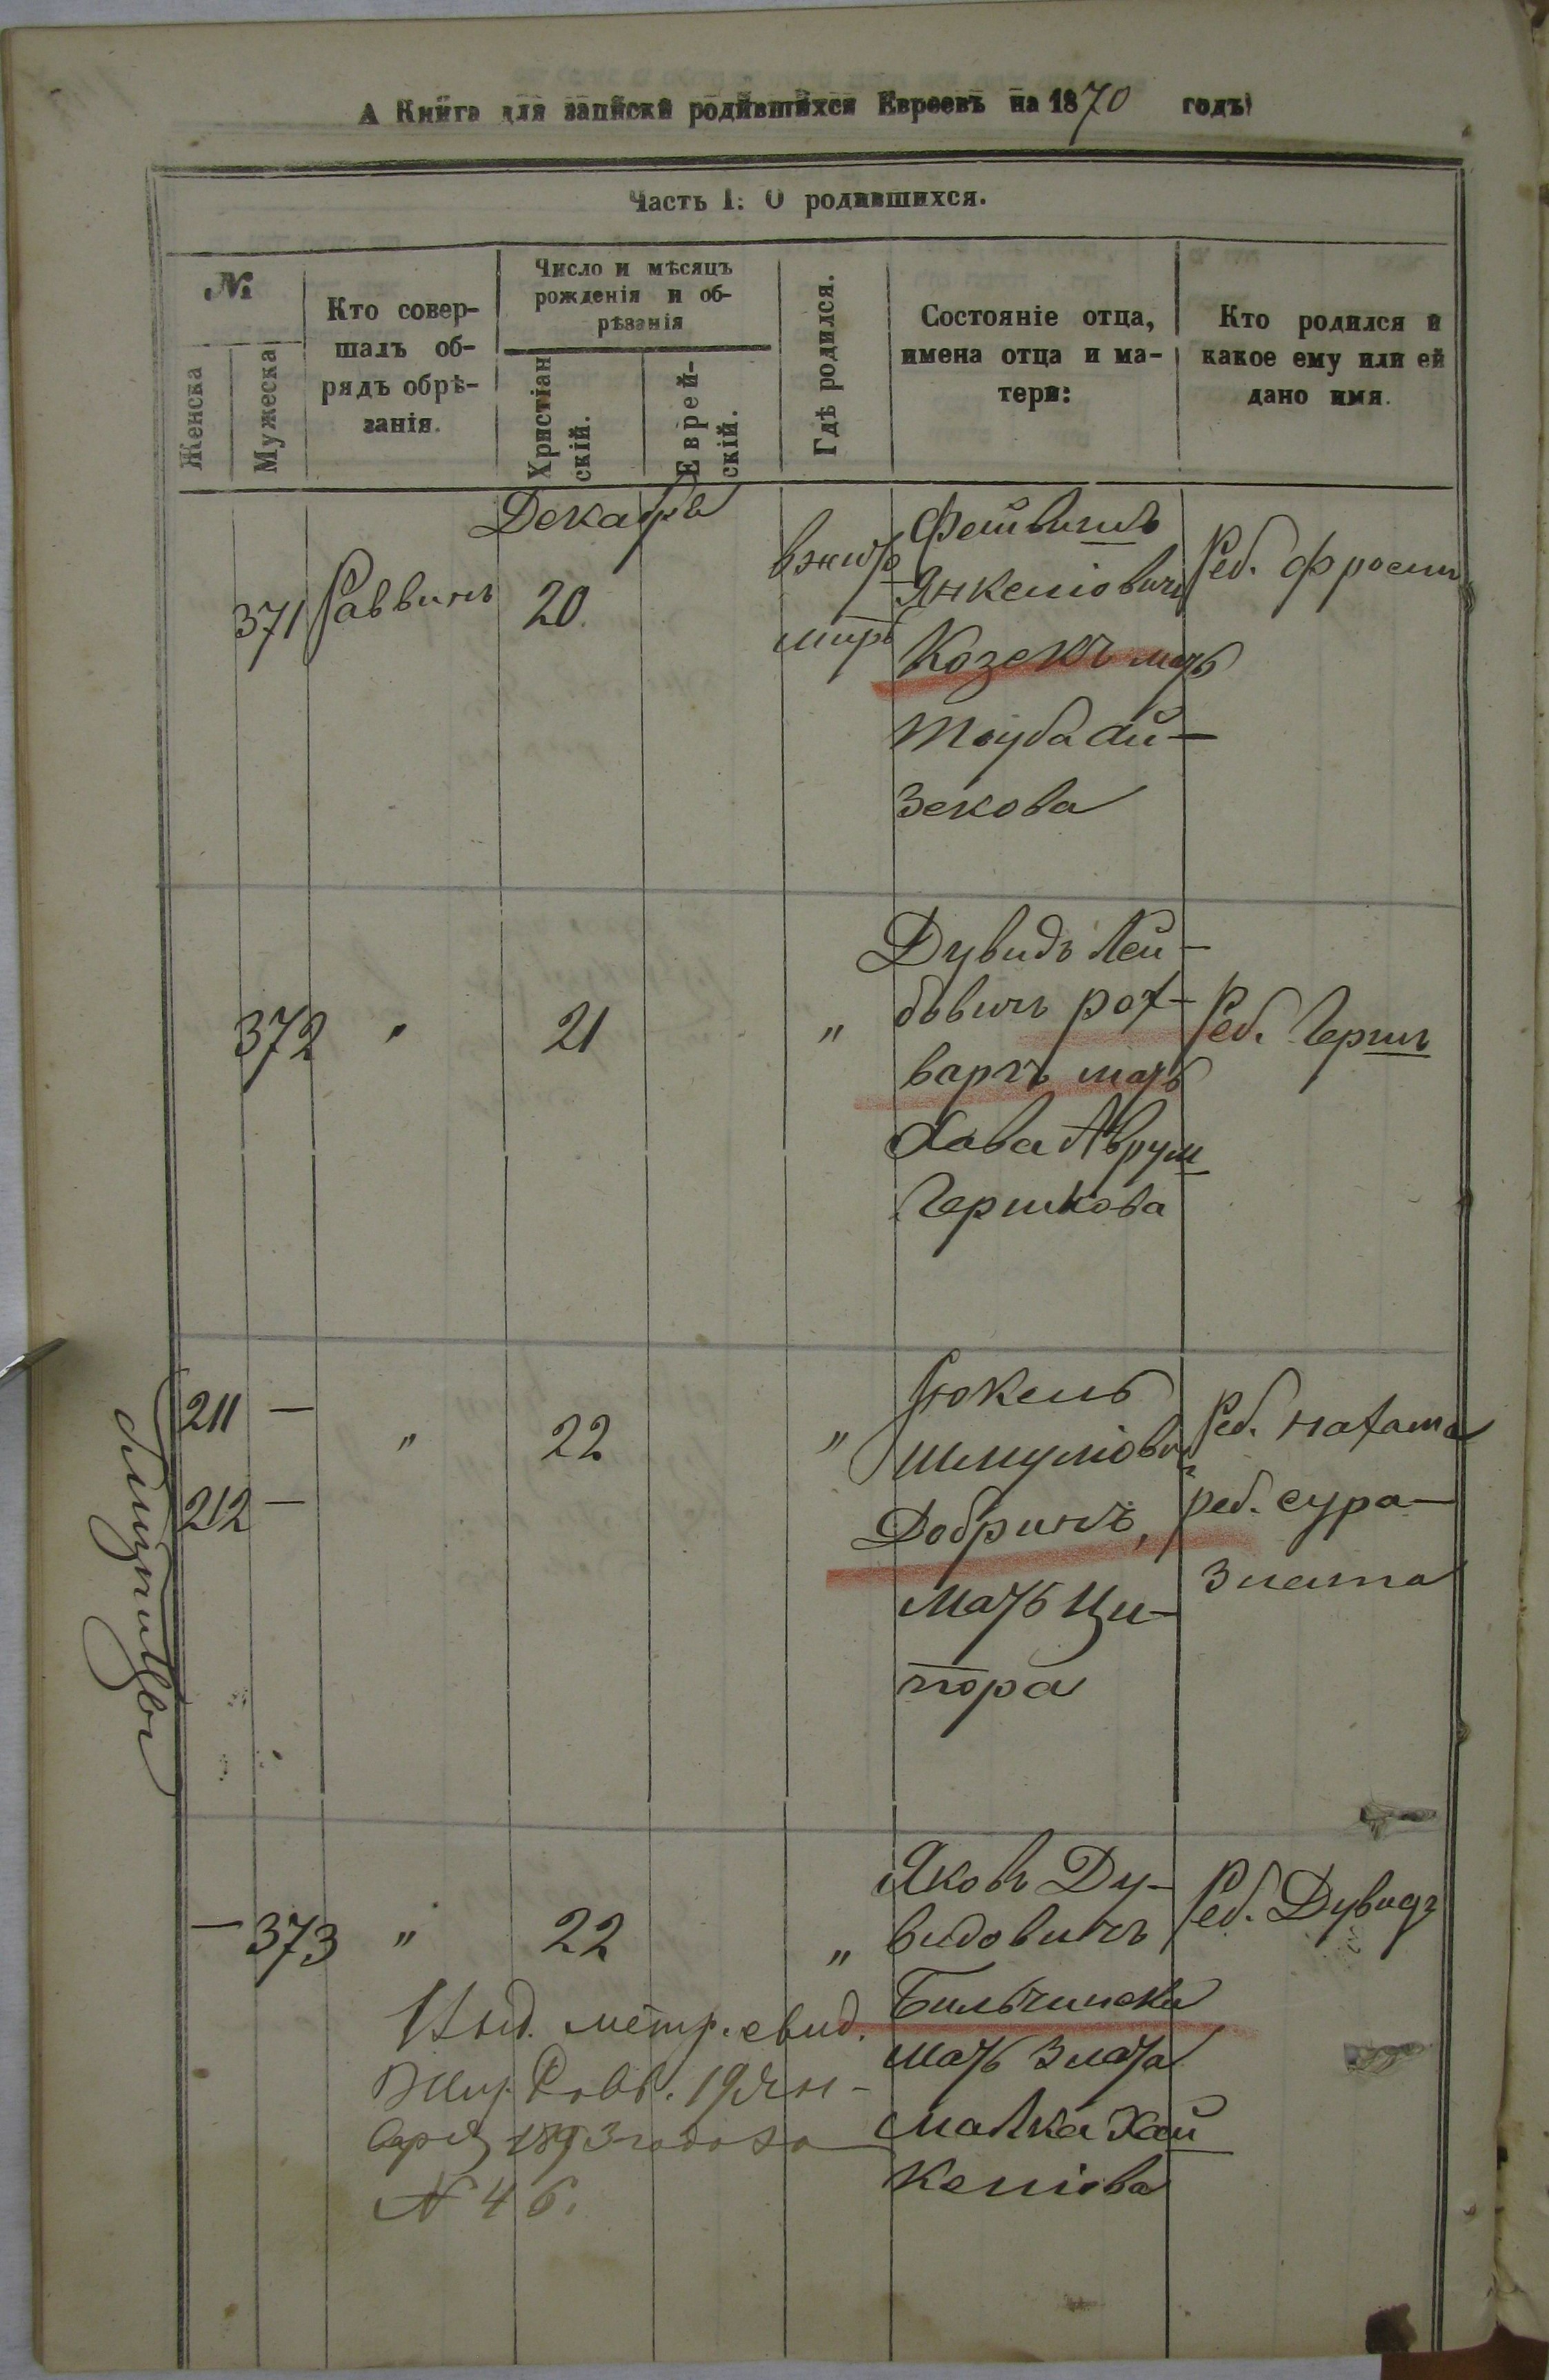 А Книга для записки родившихся Евреевъ на 1870 годъ
Часть I: О родившихся.
№
Женска
Мужеска
Кто совер-
шалъ об-
рядъ обрѣ-
занія.
Число и мѣсяцъ
рожденія и об-
рѣзанія
Христіан
скій.
Еврей-
скій.
Гдѣ родился.
Состояніе отца,
имена отца и ма-
тери:
Кто родился и
какое ему или ей
дано имя.
Декабрь
371 Раввинъ 20.
вжито
миръ
Фейвишъ
Янкеліовичъ
Козекъ мать
Тауба Ай-
зекова
Реб. Фроем
372 " 21 "
Дувидъ Лей-
бовичъ Рох-
варгъ мать
Хава Аврум
Гершкова
Реб. Герш
211 —
212 —
" 22 "
Іокель
Шмуліович
Добринъ,
мать Ци-
пора
Реб. Нахама
реб. Сура-
Злата
— 373 " 22 "
Яковъ Ду-
видовичъ
Бильчински
мать Злата
Малка Хай
келіова
Реб. Дувидъ
Выд. метр. свид.
Жит. Равв. 19 Ян-
варя 1893 года за
№ 46.